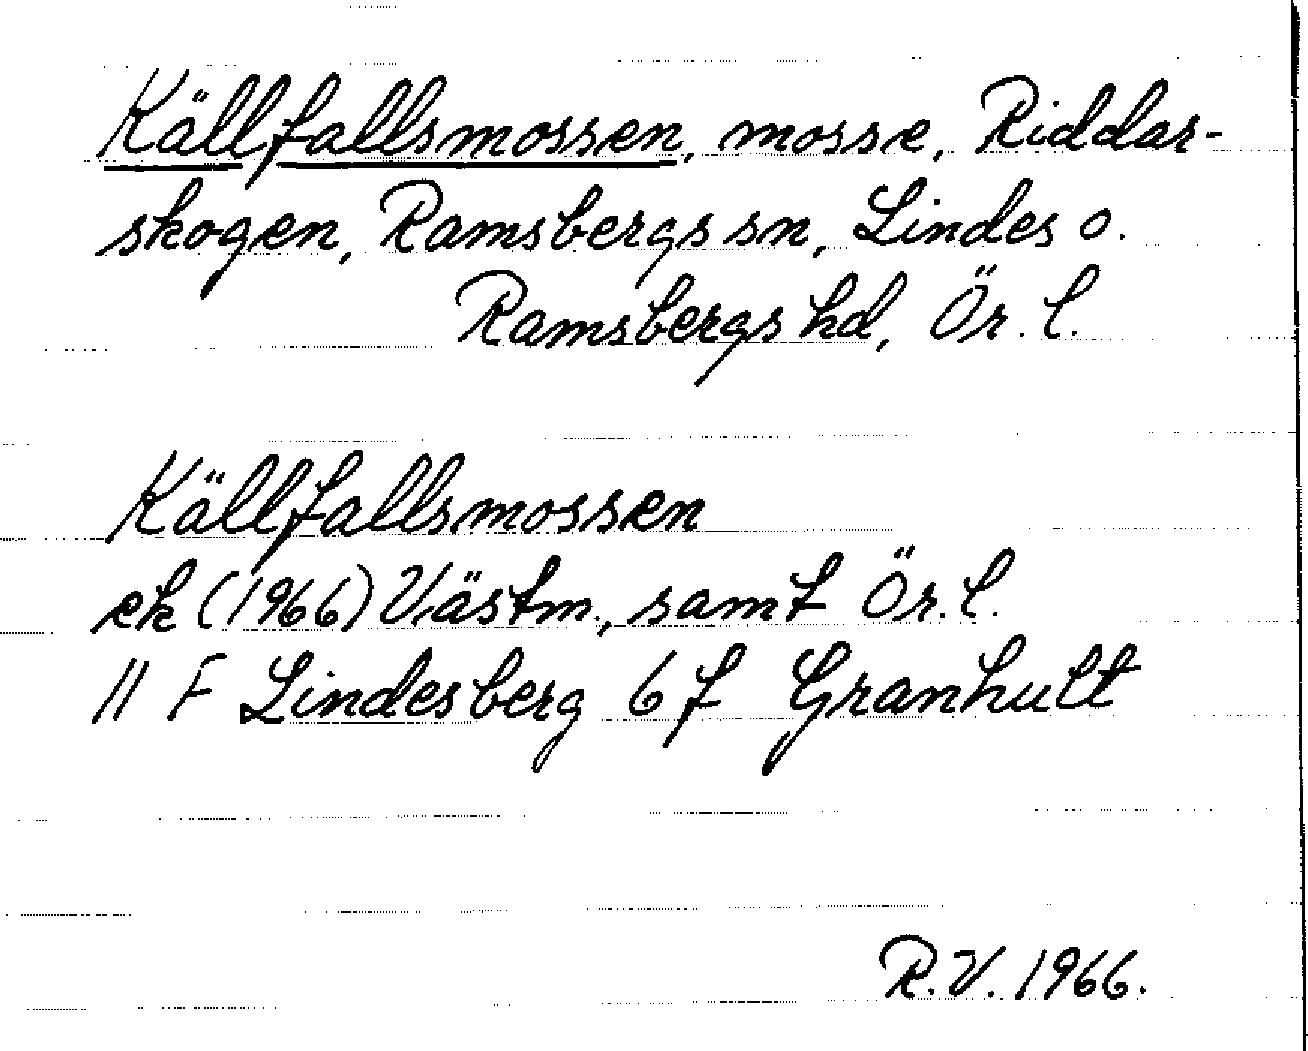 Källfallsmossen, mosse, Riddar-
skogen, Ramsbergs sn, Lindes o.
Ramsbergs hd, Ör. l.
Källfallsmossen
ek (1966) Västm., samt Ör. l.
11 F Lindesberg 6 f Granhult
R.V. 1966.